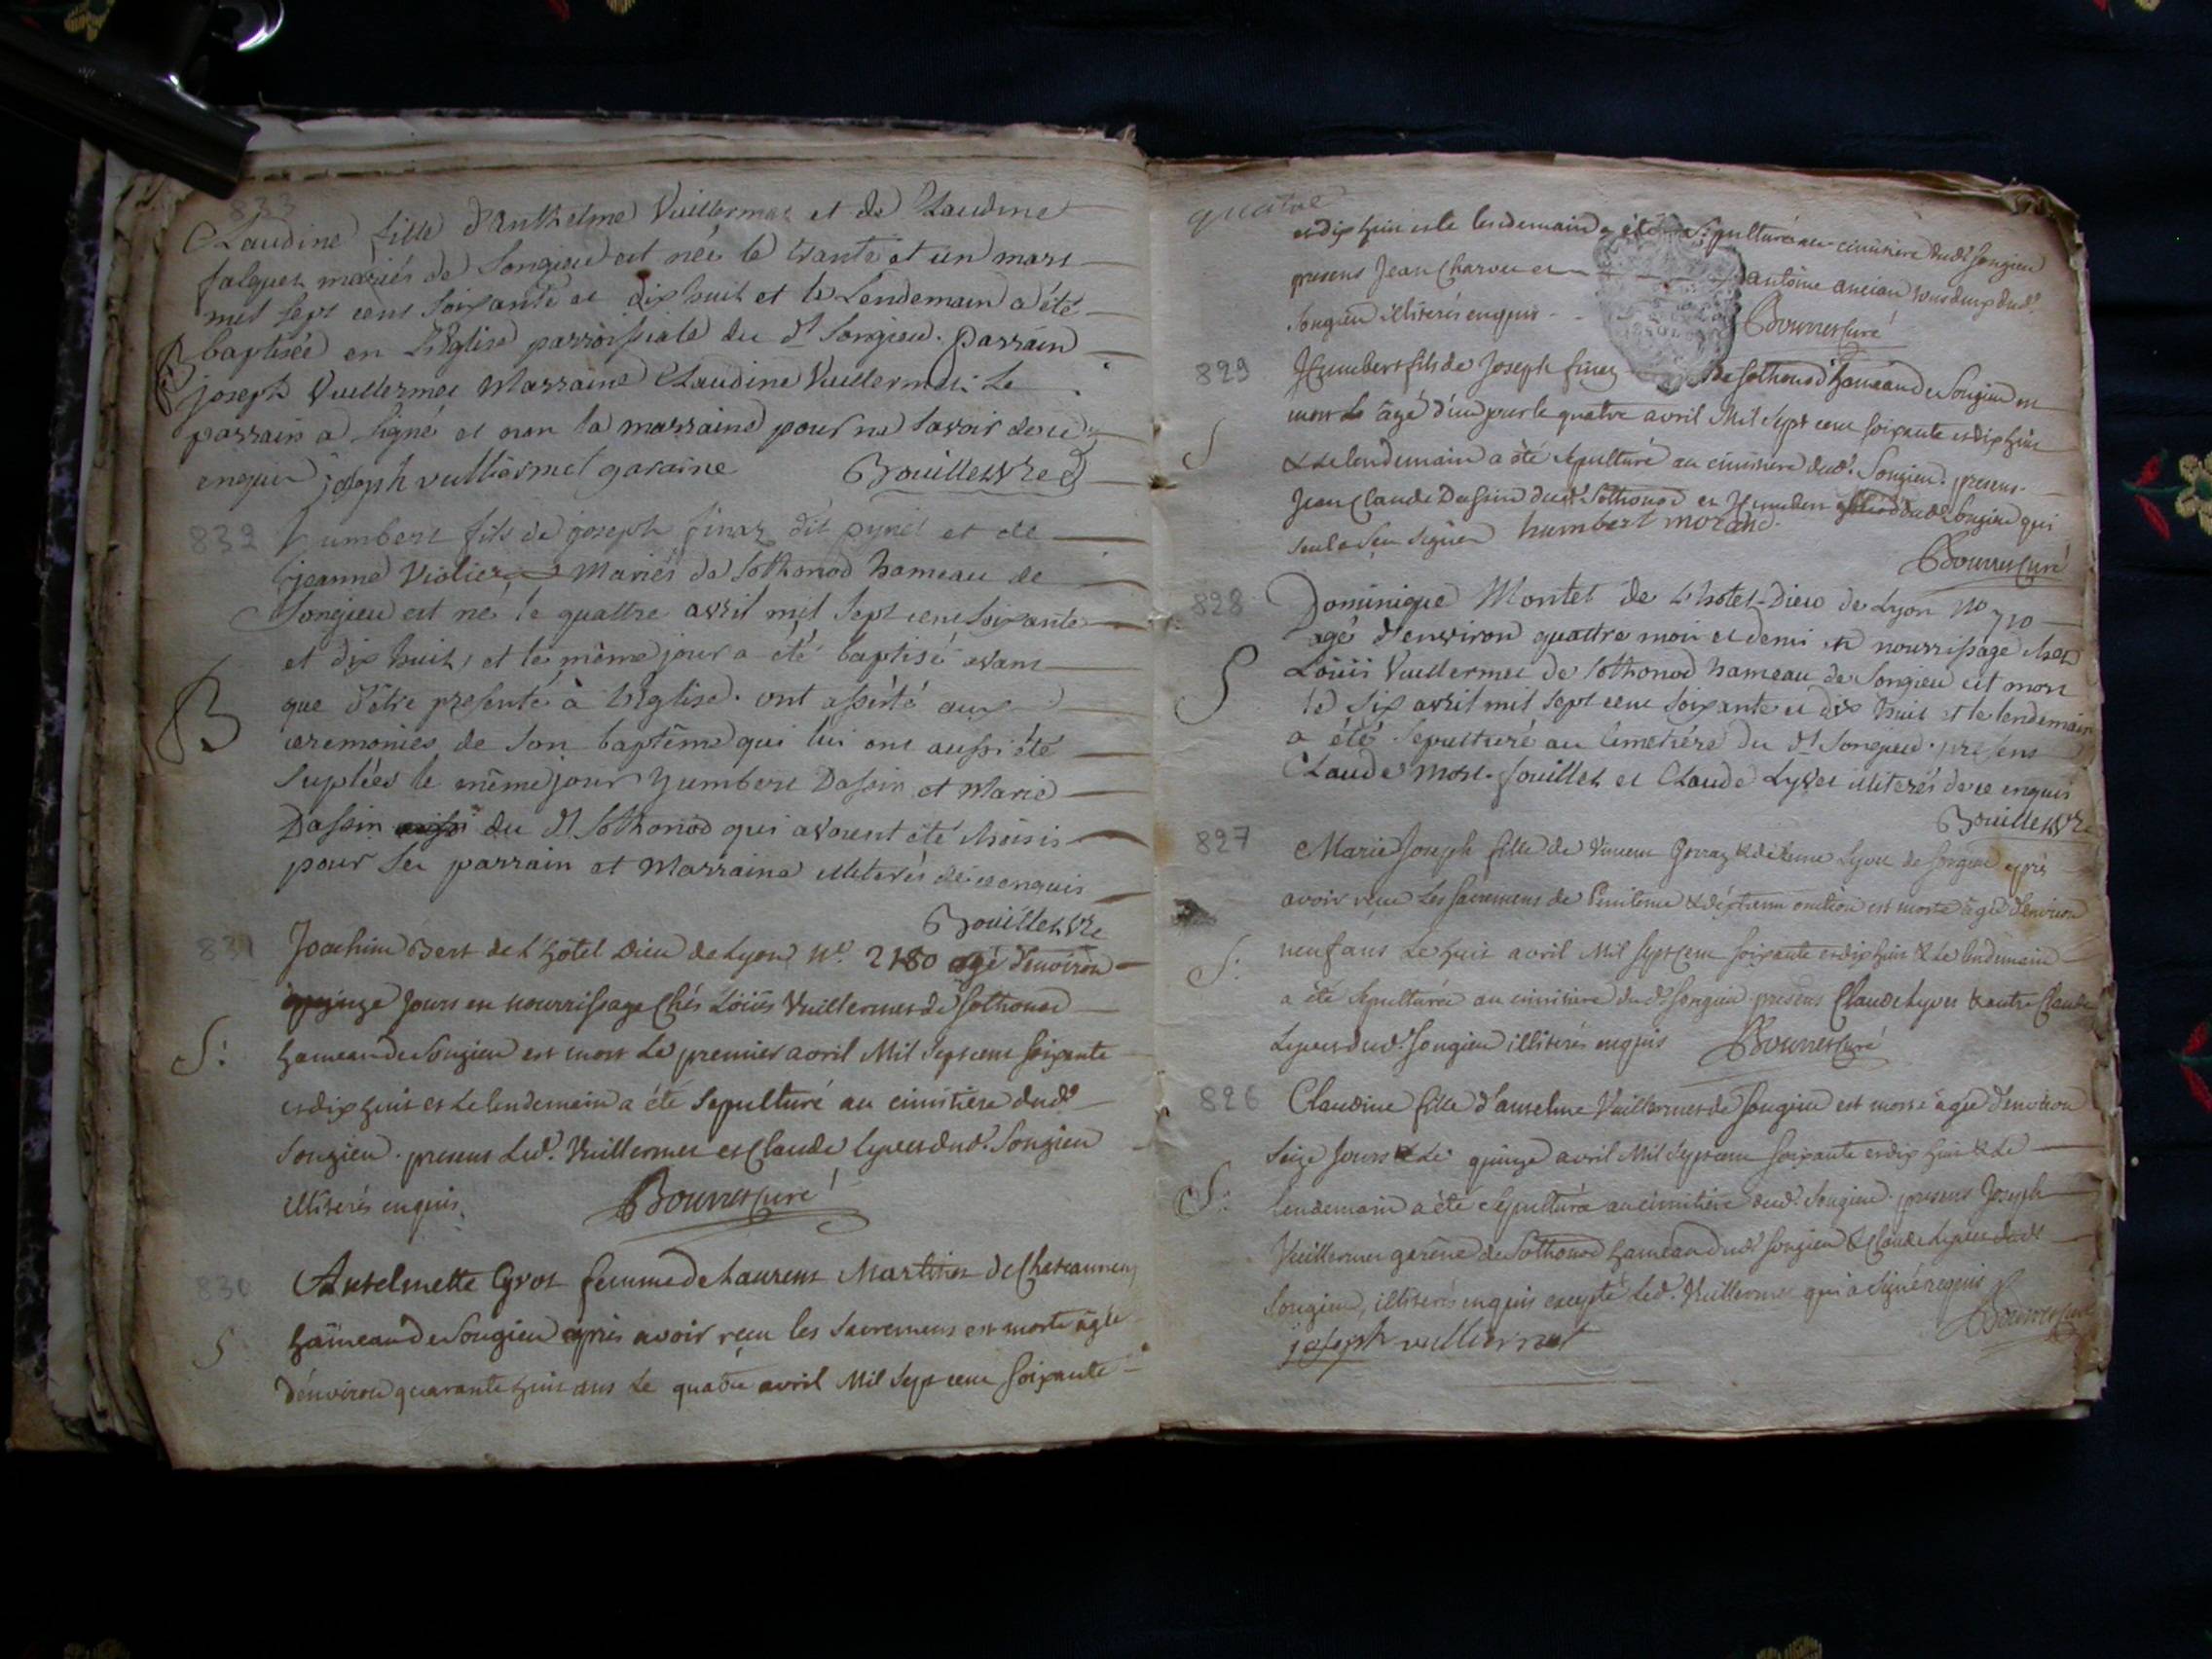 833
Claudine fille d'Anthelme Vuillermet et de Claudine
falquet mariés de Songieu est née le trante et un mars
mil sept cens soixante et dix huit et le Lendemain a été
baptisée en L'Eglise parroissiale du dt Songieu. Parrain
B
joseph Vuillermet Marraine Claudine Vuillermet. Le
parrain a signé et non la marraine pour ne savoir de ce
enquis joseph vulliermet garaine Bouillet Vre
832 humbert fils de joseph finaz dit pynet et de
jeanne Violier Mariés de Sothonod hameau de
Songieu est né le quattre avril mil sept cens soixante
et dix huit, et le même jour a été baptisé avant
que d'être presenté à L'Eglise. ont assisté aux
B
ceremonies de son baptême qui lui ont aussi été
suplées le même jour humbert Dassin et Marie
Dassin du dt Sothonod qui avoient été choisis
pour ses parrain et Marraine illiterés de ce enquis
Bouillet Vre
831 Joachim Bert de l'hôtel Dieu de Lyon No. 2180 agé d'environ
quinze jours en nourrissage chés Loüis Vuillermet de Sothonod
S:
hameau de Songieu est mort Le premier avril Mil sept cens soixante
et dix huit et Le lendemain a été sepulturé au cimitière dudt
Songieu. presens Led. Vuillermet et Claude Lyvet dud. Songieu
illiterés enquis. Bouvret Curé
830 Anselmette Gros femme de Laurent Martinet de Chateauneuf
S
hameau de Songieu après avoir reçu les sacremens est morte âgée
d'environ quarante huit ans Le quatre avril Mil sept cens soixante
quatre
et dix huit et le lendemain a été sepulturée au cimitière dudt Songieu
presens Jean Charvet et antoine ancian tous deux dudt
Songieu illiterés enquis Bouvret Curé
829 Humbert fils de Joseph finaz de Sothonod hameau de Songieu est
mort âgé d'un jour le quatre avril Mil sept cens soixante et dix huit
S
& Le lendemain a été sepulturé au cimitiere dudt. Songieu. presens
Jean Claude Dassin dudt Sothonod et Humbert dudt Songieu qui
seul a seu signer humbert morand.
Bouvret Curé
828 Dominique Montet de L'hotel-Dieu de Lyon No 710
agé d'environ quattre mois et demi en nourrissage chez
S
Loüis Vuillermet de Sothonod hameau de Songieu est mort
le six avril mil sept cens soixante et dix huit et le lendemain
a été sepulturé au Cimetiére du dt Songieu. presens
Claude Mort-fouillet et Claude Lyvet illiterés de ce enquis
Bouillet Vre
827 Marie Joseph fille de Vincent Gorraz & d'étienne Lyvet de Songieu après
avoir reçue Les sacremens de Penitence & d'éxtreme onction est morte âgée d'environ
S:
neuf ans Le huit avril Mil sept cens soixante et dix huit & Le lendemain
a été sepulturée au cimitiere dudt Songieu presens Claude Lyvet & autre Claude
Lyvet dudt. Songieu illiterés enquis Bouvret Curé
826 Claudine fille d'anselme Vuillermet de Songieu est morte agée d'environ
seize jours Le quinze avril Mil sept cens soixante et dix huit & Le
S:
lendemain a été sepulturée au cimitière dudt. Songieu. presens Joseph
Vuillermet garène de Sothonod hameau dudt Songieu & Claude Lyvet dudt
Songieu, illiterés enquis excepté Led. Vuillermet qui a signé requis
joseph vulliermet Bouvret Curé